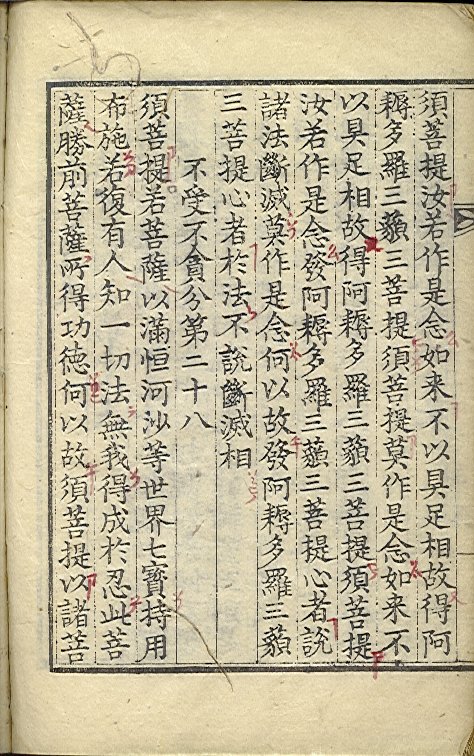 須菩提汝若作是念如来不以具足相故得阿
耨多羅三藐三菩提須菩提莫作是念如来不
以具足相故得阿耨多羅三藐三菩提須菩提
汝若作是念發阿耨多羅三藐三菩提心者說
諸法斷滅莫作是念何以故發阿耨多羅三藐
三菩提心者於法不說斷滅相
不受不貪分第二十八
須菩提若菩薩以滿恒河沙等世界七寶持用
布施若復有人知一切法無我得成於忍此菩
薩勝前菩薩所得功德何以故須菩提以諸菩